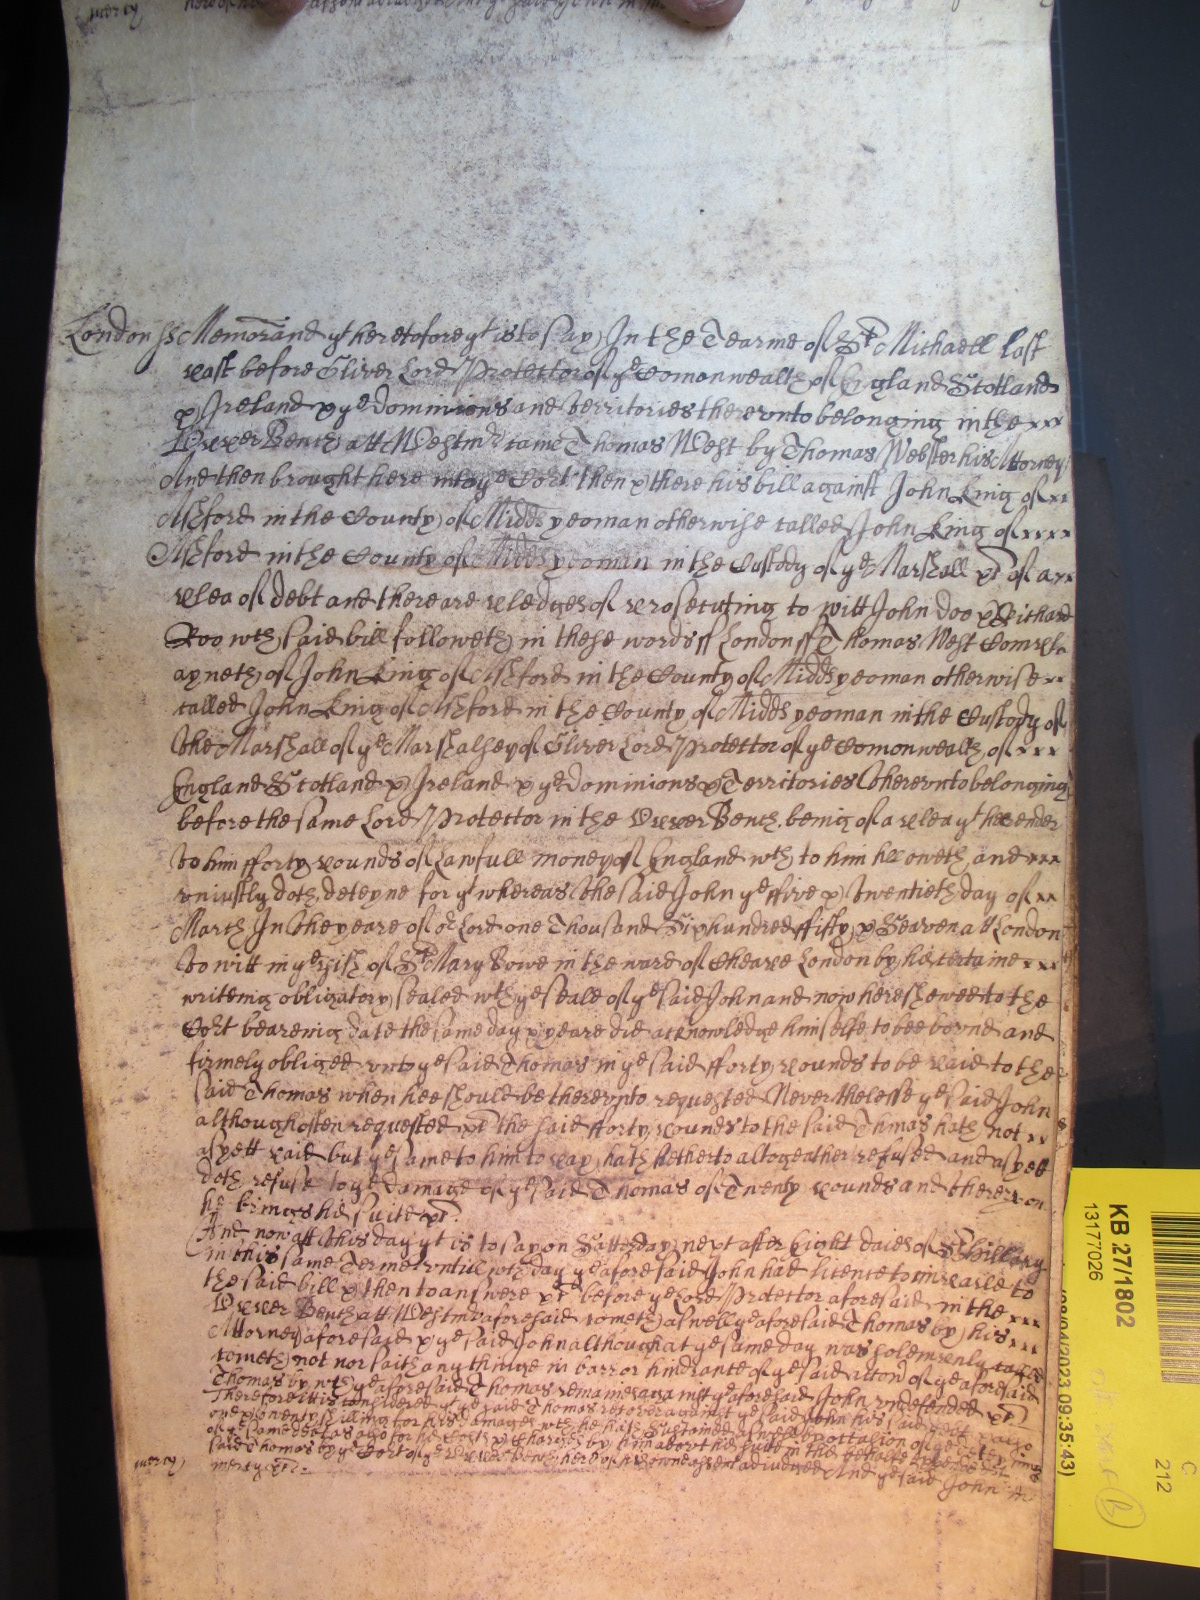 mercy
London ss Memorand yt heretofore yt is to say In the Tearme of St Michaell last
past before Oliver Lord Protector of ye Comonwealth of England Scotland
& Ireland & ye dominions and territories therevnto belonging in the
Vpper Bench att Westmr came Thomas West by Thomas Webster his Attorney
And then brought here into ye Cort then & there his bill against John King of
Ashford in the County of Midds yeoman otherwise called John King of
Ashford in the County of Midds yeoman in the Custody of ye Marshall &c of a
plea of debt and there are pledges of prosecuting to witt John Doo & Richard
Roo wch said bill followeth in these words ss London ss Thomas West Compla
ayneth of John King of Ashford in the County of Midds yeoman otherwise
called John King of Ashford in the County of Midds yeoman in the Custody of
the Marshall of ye Marshalsey of Oliver Lord Protector of ye Comonwealth of
England Scotland & Ireland & ye dominions & Territories therevnto belonging
before the same Lord Protector in the Vpper Bench being of a plea yt he render
to him fforty pounds of Lawfull money of England wch to him hee oweth and
vniustly doth deteyne for yt whereas the said John ye ffive & twentieth day of
March In the yeare of or Lord one Thousand Six hundred ffifty & Seaven att London
to witt in ye pish of St Mary Bowe in the ward of Cheape London by his certaine
writeing obligatory sealed wth ye seale of ye said John and now here shewed to the
Cort beareing date the same day & yeare did acknowledge himselfe to bee bound and
firmely obliged vnto ye said Thomas in ye said fforty pounds to be paid to the
said Thomas when hee should be therevnto requested Neverthelesse ye said John
although often requested &c the said fforty pounds to the said Thomas hath not
as yett paid but ye same to him to pay hath hetherto altogeather refused and as yett
doth refuse to ye damage of ye said Thomas of Twenty pounds and therevpon
he brings his suite &c
And now att this day yt is to say on Satterday next after Eight daies of St Hillary
in this same Terme vntill wch day ye aforesaid John had licence to imparle to
the said bill & then to answere &c before ye Lord Protector aforesaid in the
Vpper Bench att Westmr aforesaid cometh aswell ye aforesaid Thomas by his
Attorney aforesaid & ye said John although at ye same day was solemnly called
cometh not nor saith any thinge in barr or hindrance of ye said accon of ye aforesaid
Thomas by wch ye aforesaid Thomas remaines against ye aforesaid John vndefended &c
Therefore itt is considered yt ye said Thomas recover against ye said John his said debt & also
one & twenty shillings for his damages wch he hath sustained aswell by occasion of ye detayning
of ye same debt as also for his Costs & charges by him about his suite in this behalfe
said Thomas by ye Cort of ye Vpper Bench here of his owne assent adiudged And ye said John in
mercy mercy &c
KB 27/1802
13177026
09:35:43)
C
212